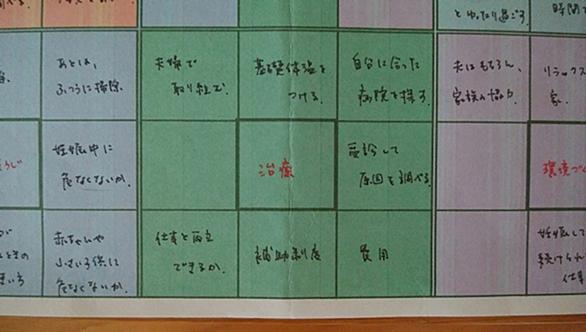 とゆったり過ごす
時間
あとは、
ふつうに掃除。
夫婦で
取り組む。
基礎体温を
つける。
自分に合った
病院を探す。
夫はもちろん、
家族の協力。
リラックス
家。
妊娠中に
危なくないか。
治療
受診して
原因を調べる。
環境づ
赤ちゃんや
小さい子供に
危なくないか。
仕事と両立
できるか。
補助制度
費用
妊娠して
続けられ
仕事